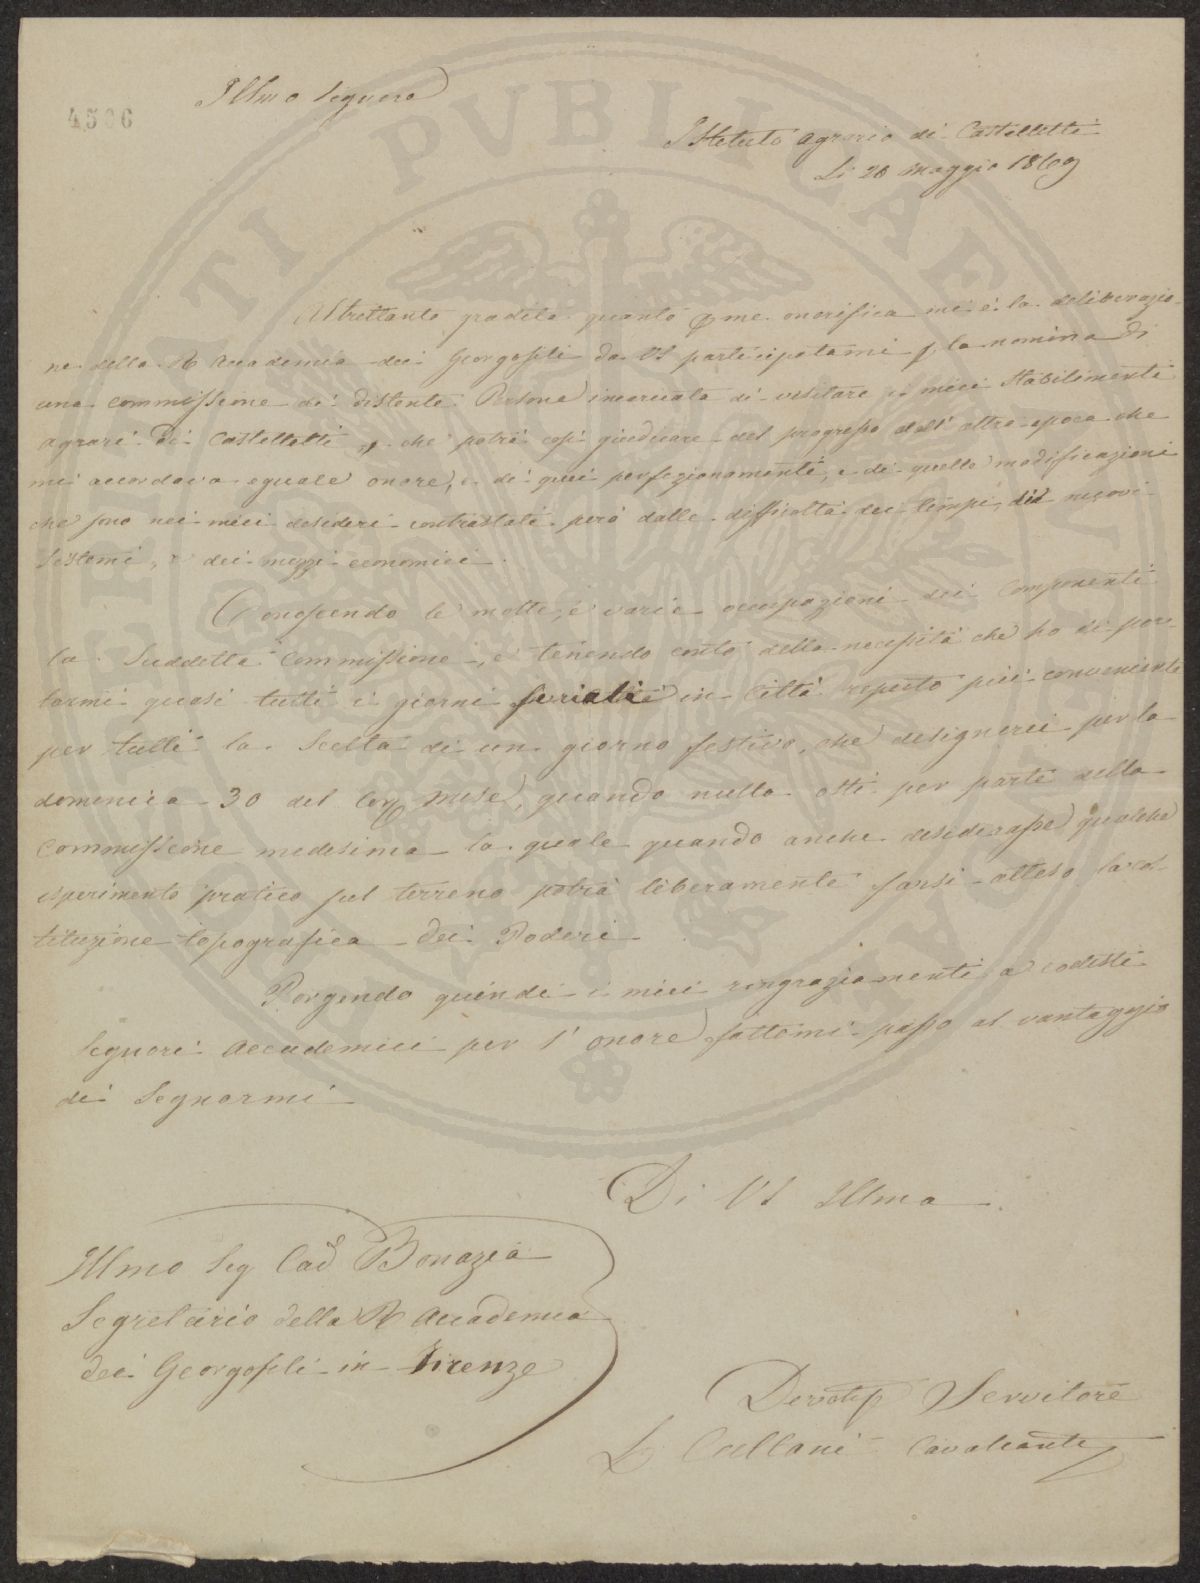 4506
Illmo Signore
Istituto Agrario di Castelletti
Li 28 Maggio 1869
Altrettanto gradita quanto p me onorifica mi è la deliberazio-
ne della R Accademia dei Georgofili da VS partecipatami p la nomina di
una commissione di distinte Persone incaricata di visitare i miei Stabilimenti
agrari di Castelletti, che potrà così giudicare del progresso dall' altra epoca che
mi accordava eguale onore, e di quei perfezionamenti, e di quelle modificazioni
che sono nei miei desideri contrastati però dalle difficoltà dei tempi, dei nuovi
Sistemi, e dei mezzi economici.
Conoscendo le molte, e varie occupazioni dei componenti
la Suddetta Commissione, e tenendo conto della necessità che ho di por-
tarmi quasi tutti i giorni feriali in Città reputo più conveniente
per tutti la Scelta di un giorno festivo, che designerei per la
domenica 30 del Corr Mese, quando nulla osti per parte della
Commissione medesima la quale quando anche desiderasse qualche
esperimento pratico sul terreno potrà liberamente farsi atteso la cos-
tituzione topografica dei Poderi
Porgendo quindi i miei ringraziamenti a codesti
Signori Accademici per l' onore fattomi passo al vantaggio
di Segnarmi
Di VS Illma
Illmo Sig
Segretario della R Accademia
dei Georgofili in Firenze
Devotiss Servitore
L Cullani Cavalcanti